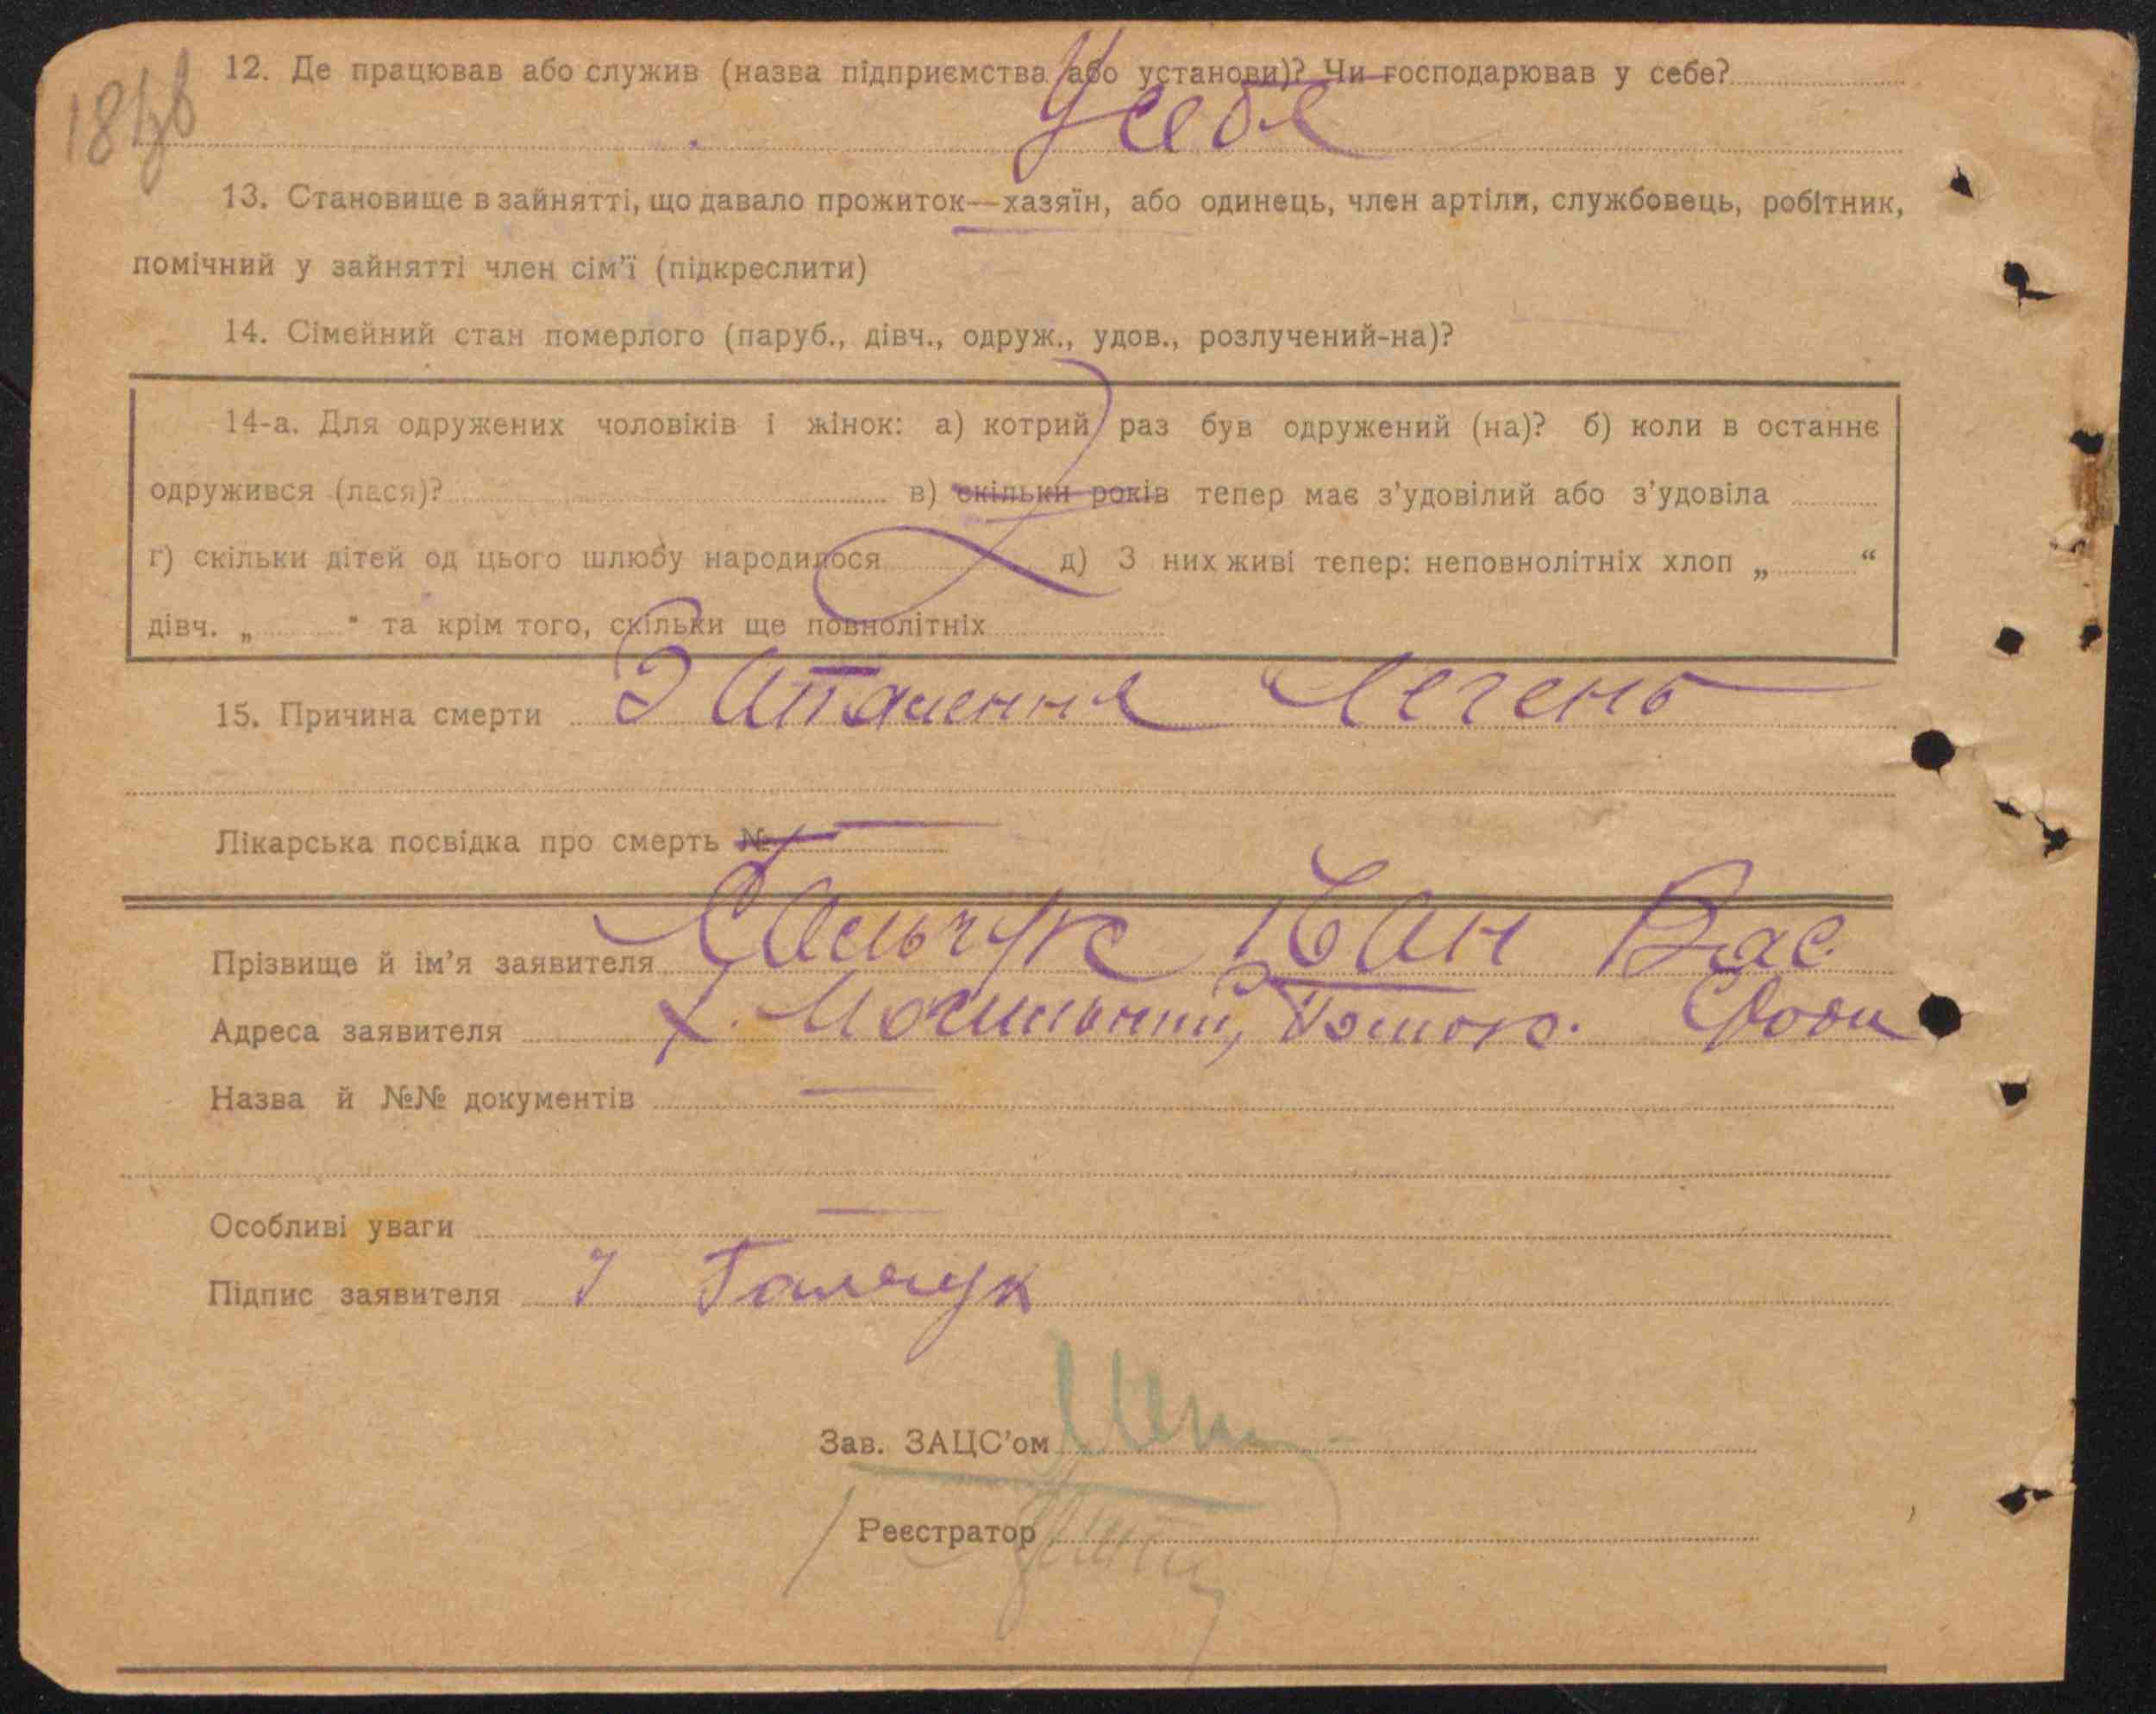 12. Де працював або служив (назва підприємства або установи)? Чи господарював у себе?
У себе
13. Становище в зайнятті, що давало прожиток—хазяїн, або одинець, член артіли, службовець, робітник,
помічний у зайнятті член сім'ї (підкреслити)
14. Сімейний стан померлого (паруб., дівч., одруж., удов., розлучений-на)?
14-а. Для одружених чоловіків і жінок: а) котрий раз був одружений (на)? б) коли в останнє
одружився (лася)? в) скільки років тепер має з'удовілий або з'удовіла
г) скільки дітей од цього шлюбу народилося д) З них живі тепер: неповнолітніх хлоп „ “
дівч. „ “ та крім того, скільки ще повнолітніх
15. Причина смерти Запалення легень
Лікарська посвідка про смерть №
Прізвище й ім'я заявителя Гальчук Іван Вас
Адреса заявителя х.
Назва й №№ документів
Особливі уваги
Підпис заявителя І Галчук
Зав. ЗАЦС'ом
Реєстратор